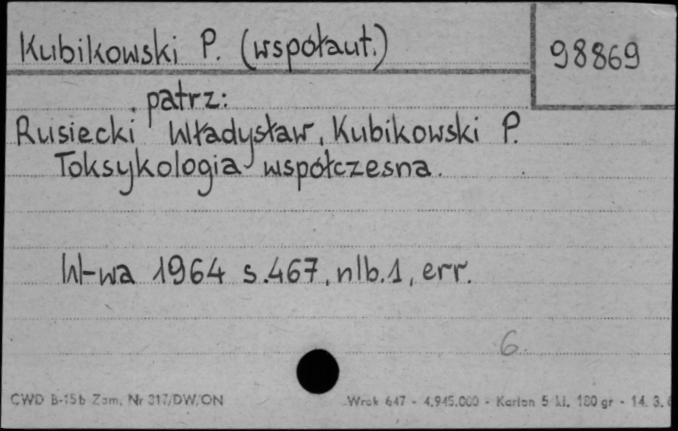 Kubikowski P. (współaut.)
98869
patrz:
Rusiecki Władysław, Kubikowski P.
Toksykologia współczesna.
W-wa 1964 s.467, nlb.1, err.
6.
CWD B-15b Zam. Nr 317/DW/ON
Wrok 647 - 4.945.000 - Karton 5 kl. 180 gr - 14. 3.